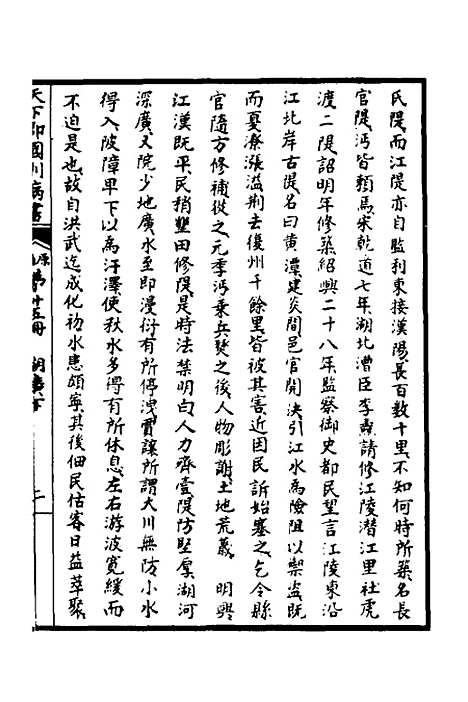 氏隄而江隄亦自監利東接漢陽長百數十里不知何時所築名長
官隄沔皆賴焉宋乾道七年湖北漕臣李燾請修江陵潛江里社虎
渡二隄詔明年修築紹興二十八年監察御史都民望言江陵東沿
江北岸古隄名曰黃潭建炎間邑官開決引江水為險阻以禦盜既
而夏潦漲溢荆去復州千餘里皆被其害近因民訴始塞之乞令縣
官隨方修補從之元季沔乘兵燹之後人物彫謝土地荒蕪 明興
江漢既平民稍墾田修隄是時法禁明白人力齊壹隄防堅厚湖河
深廣又院少地廣水至即漫衍有所停洩實讓所謂大川無防小水
得入陂障卑下以為汙澤使秋水多得有所休息左右游波寬緩而
不迫是也故自洪武迄成化初水患頗寧其後佃民估客日益萃聚
天下郡國利病書 原第廿五冊 湖廣下 二